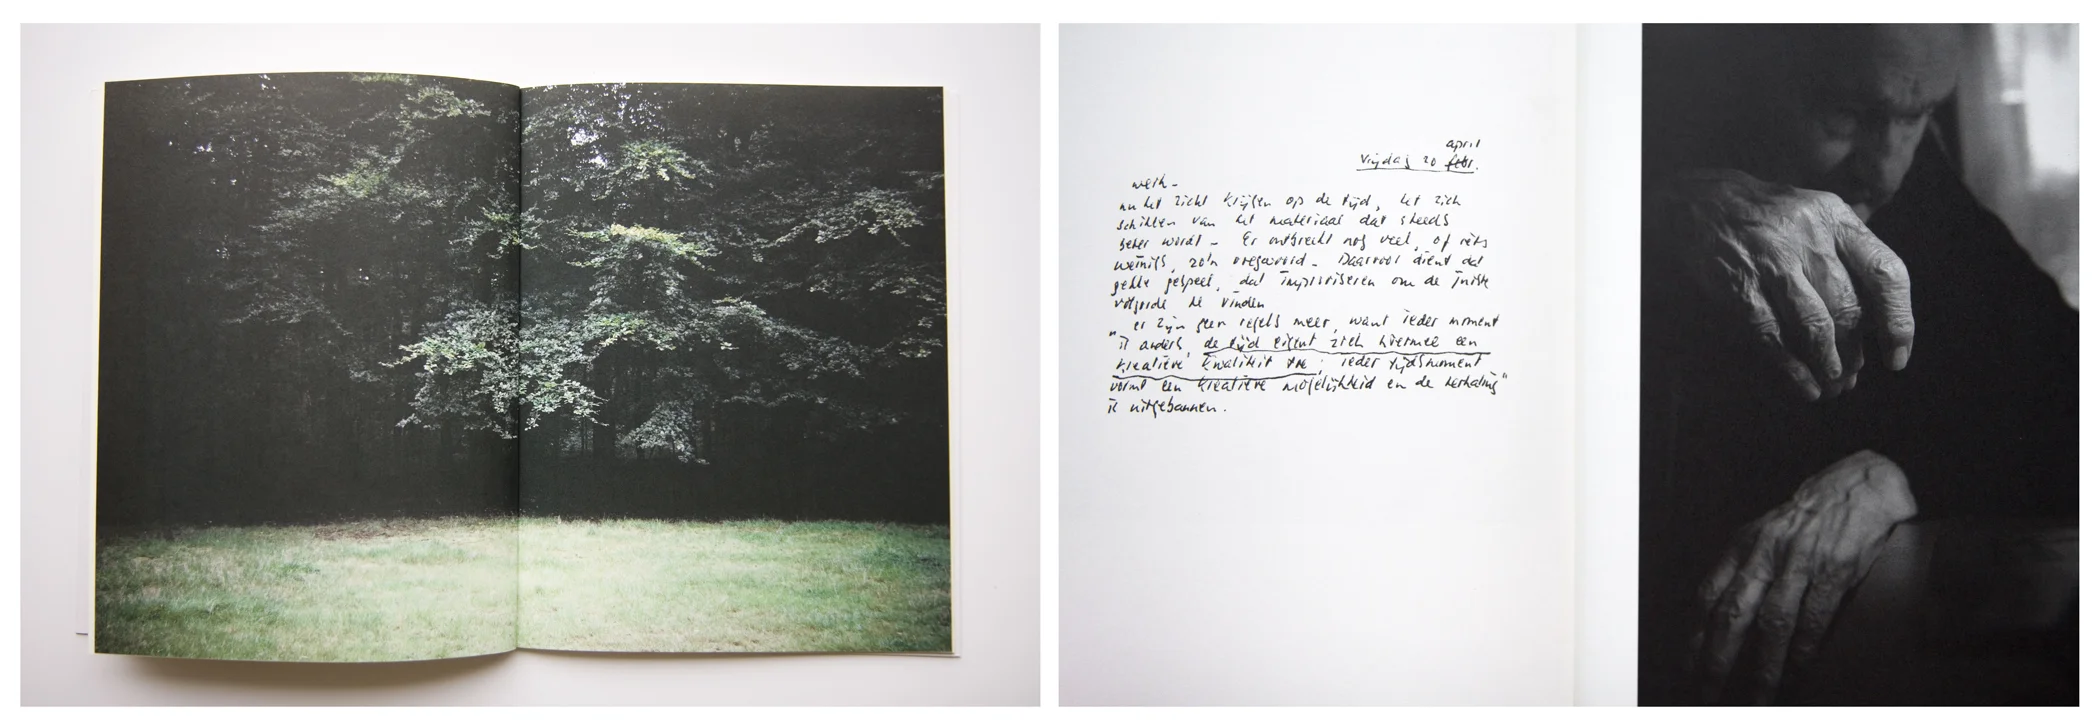 april
vrijdag 20 febr.
werk -
nu het zicht krijgen op de tijd, het zich
schikken van het materiaal dat steeds
beter wordt - Er ontbreekt nog veel, of iets
weinigs, zo'n oregawoid - Daarvoor dient dat
gehele gespeel, dat improviseren om de juiste
volgorde te vinden
"er zijn geen regels meer, want ieder moment
is anders, de tijd eigent zich hiermee een
kreatieve kwaliteit toe; ieder tijdsmoment
vormt een kreatieve mogelijkheid en de herhaling"
is uitgebannen.